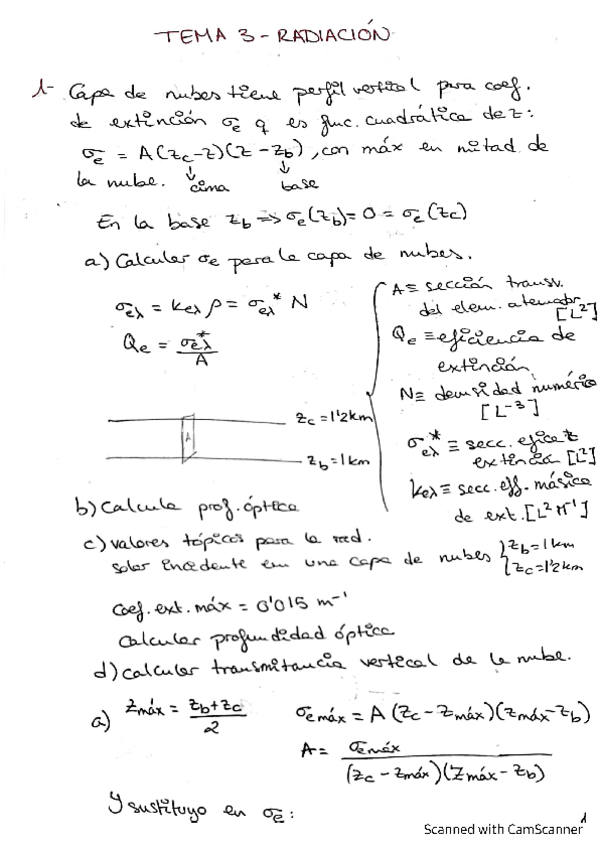 TEMA 3 - RADIACIÓN
1- Capa de nubes tiene perfil vertical para coef.
de extinción σe q es func. cuadrática de z:
σe = A(zc-z)(z-zb), con máx en mitad de
la nube. ↓ cima ↓ base
En la base zb => σe(zb)=0=σe(zc)
a) Calcular σe para la capa de nubes.
σeλ = keλ ρ = σeλ* N
Qe = σeλ* / A
A ≡ sección transv.
del elem. atenuador [L²]
Qe ≡ eficiencia de
extinción
N ≡ densidad numérica
[L⁻³]
σeλ* ≡ secc. eficaz
extinción [L²]
keλ ≡ secc. eff. másica
de ext. [L² M⁻¹]
A
zc = 1'2 km
zb = 1 km
b) Calcula prof. óptica
c) valores típicos para la rad.
solar incidente en una capa de nubes { zb = 1 km
zc = 1'2 km
Coef. ext. máx = 0'015 m⁻¹
Calcular profundidad óptica
d) calcular transmitancia vertical de la nube.
a) zmáx = (zb + zc) / 2 σemáx = A (zc - zmáx)(zmáx - zb)
A = σemáx / (zc - zmáx)(zmáx - zb)
Y sustituyo en σe:
1
Scanned with CamScanner